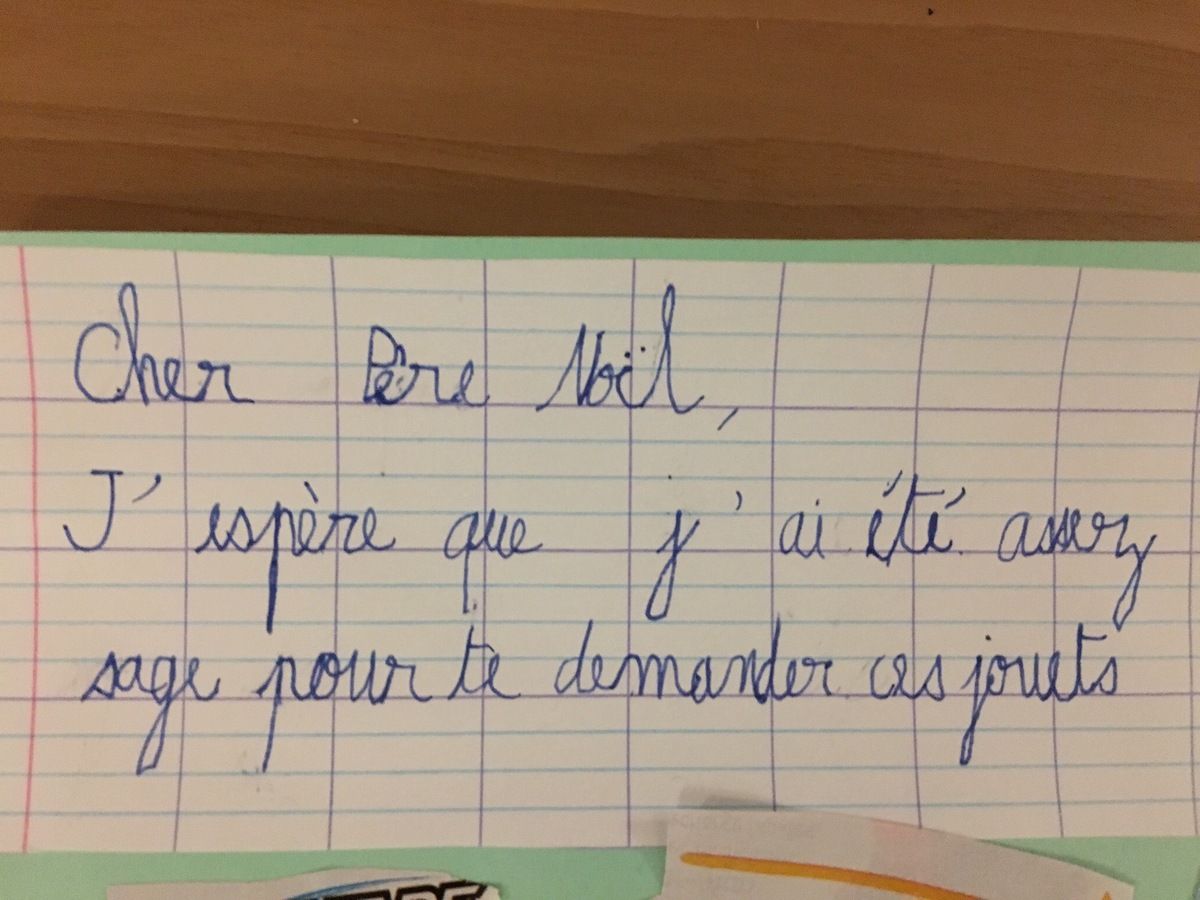 Cher Père Noël,
J'espère que j'ai été assez
sage pour te demander ces jouets